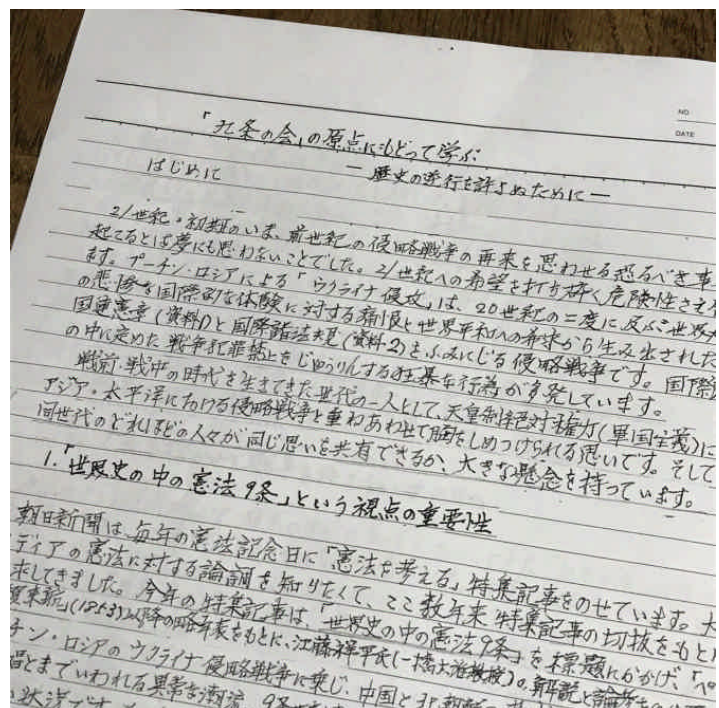 NO
DATE
「九条の会」の原点にもどって学ぶ
― 歴史の逆行を許さぬために ―
はじめに
21世紀・初期のいま、前世紀の侵略戦争の再来を思わせる恐るべき事
起てるとは夢にも思わないことでした。21世紀への希望を打ち砕く危険性さえ
ます。プーチン・ロシアによる「ウクライナ侵攻」は、20世紀の二度に及ぶ世界大
の悲惨な国際的な体験に対する痛恨と世界平和への希求から生み出された
国連憲章(資料1)と国際諸法規(資料2)をふみにじる侵略戦争です。国際
の中に定めた戦争犯罪禁止をじゅうりんする狂暴な行為が多発しています。
戦前・戦中の時代を生きてきた世代の一人として、天皇制絶対権力(軍国主義)に
アジア・太平洋における侵略戦争と重ねあわせて胸をしめつけられる思いです。そして
同世代のどれほどの人々が同じ思いを共有できるか、大きな懸念を持っています。
1.「世界史の中の憲法9条」という視点の重要性
朝日新聞は、毎年の憲法記念日に「憲法を考える」特集記事をのせています。
ディアの憲法に対する論調を知りたくて、ここ数年来特集記事の切抜をもと
来してきました。今年の特集記事は、「世界史の中の憲法9条」を標題にかかげ、「ペ
来航」(1853)以降の略年表をもとに、江藤祥平氏(一橋大准教授)の解説と論考を
チン・ロシアのウクライナ侵略戦争に乗じ、中国と北朝鮮の
とまでいわれる異常な潮流、9条
状況です